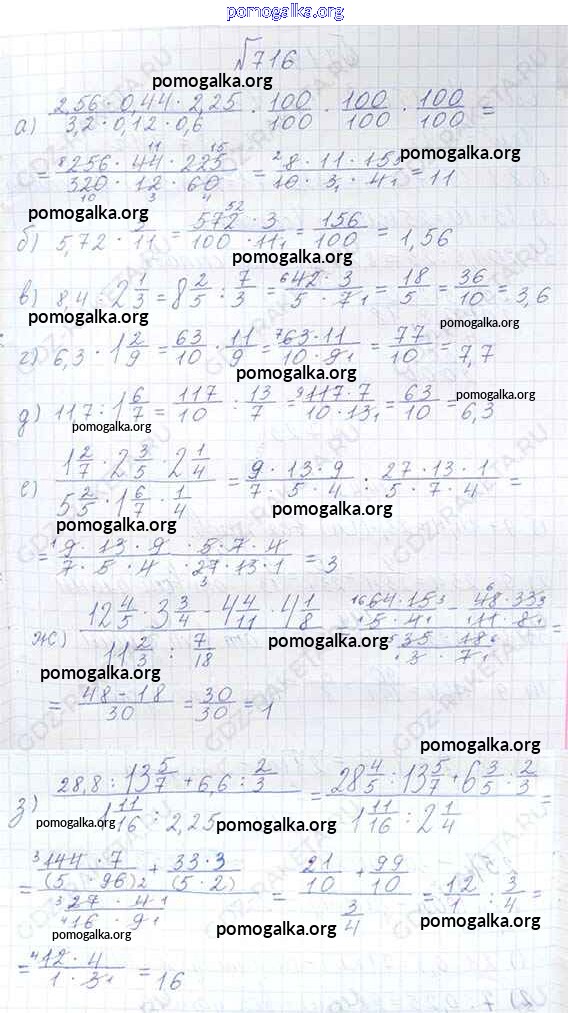 pomogalka.org
№716
pomogalka.org
а) (2,56 · 0,44 · 2,25)/(3,2 · 0,12 · 0,6) · 100/100 · 100/100 · 100/100 =
= (256 · 44 · 225)/(320 · 12 · 60) = (8 · 11 · 15)/(10 · 3 · 4) = 11
pomogalka.org
pomogalka.org
б) 5,72 · 3/11 = (572 · 3)/(100 · 11) = 156/100 = 1,56
pomogalka.org
в) 8,4 : 2 1/3 = 8 2/5 : 7/3 = (42 · 3)/(5 · 7) = 18/5 = 36/10 = 3,6
pomogalka.org
pomogalka.org
г) 6,3 · 1 2/9 = 63/10 · 11/9 = (63 · 11)/(10 · 9) = 77/10 = 7,7
pomogalka.org
д) 11,7 : 1 6/7 = 117/10 : 13/7 = (117 · 7)/(10 · 13) = 63/10 = 6,3
pomogalka.org
pomogalka.org
е) (1 2/7 · 2 3/5 · 2 1/4)/(5 2/5 · 1 6/7 · 1/4) = (9 · 13 · 9)/(7 · 5 · 4) : (27 · 13 · 1)/(5 · 7 · 4) =
pomogalka.org
pomogalka.org
= (9 · 13 · 9 · 5 · 7 · 4)/(7 · 5 · 4 · 27 · 13 · 1) = 3
ж) (12 4/5 · 3 3/4 - 4 4/11 · 4 1/8)/(11 2/3 : 7/18) = ((64 · 15)/(5 · 4) - (48 · 33)/(11 · 8))/((35 · 18)/(3 · 7)) =
pomogalka.org
pomogalka.org
= (48 - 18)/30 = 30/30 = 1
pomogalka.org
з) (28,8 : 13 5/7 + 6,6 : 2/3)/(1 11/16 : 2,25) = (28 4/5 : 13 5/7 + 6 3/5 : 2/3)/(1 11/16 : 2 1/4) =
pomogalka.org
pomogalka.org
= ((144 · 7)/(5 · 96) + (33 · 3)/(5 · 2))/((27 · 4)/(16 · 9)) = (21/10 + 99/10)/(3/4) = 12/1 : 3/4 =
pomogalka.org
pomogalka.org
pomogalka.org
= (12 · 4)/(1 · 3) = 16